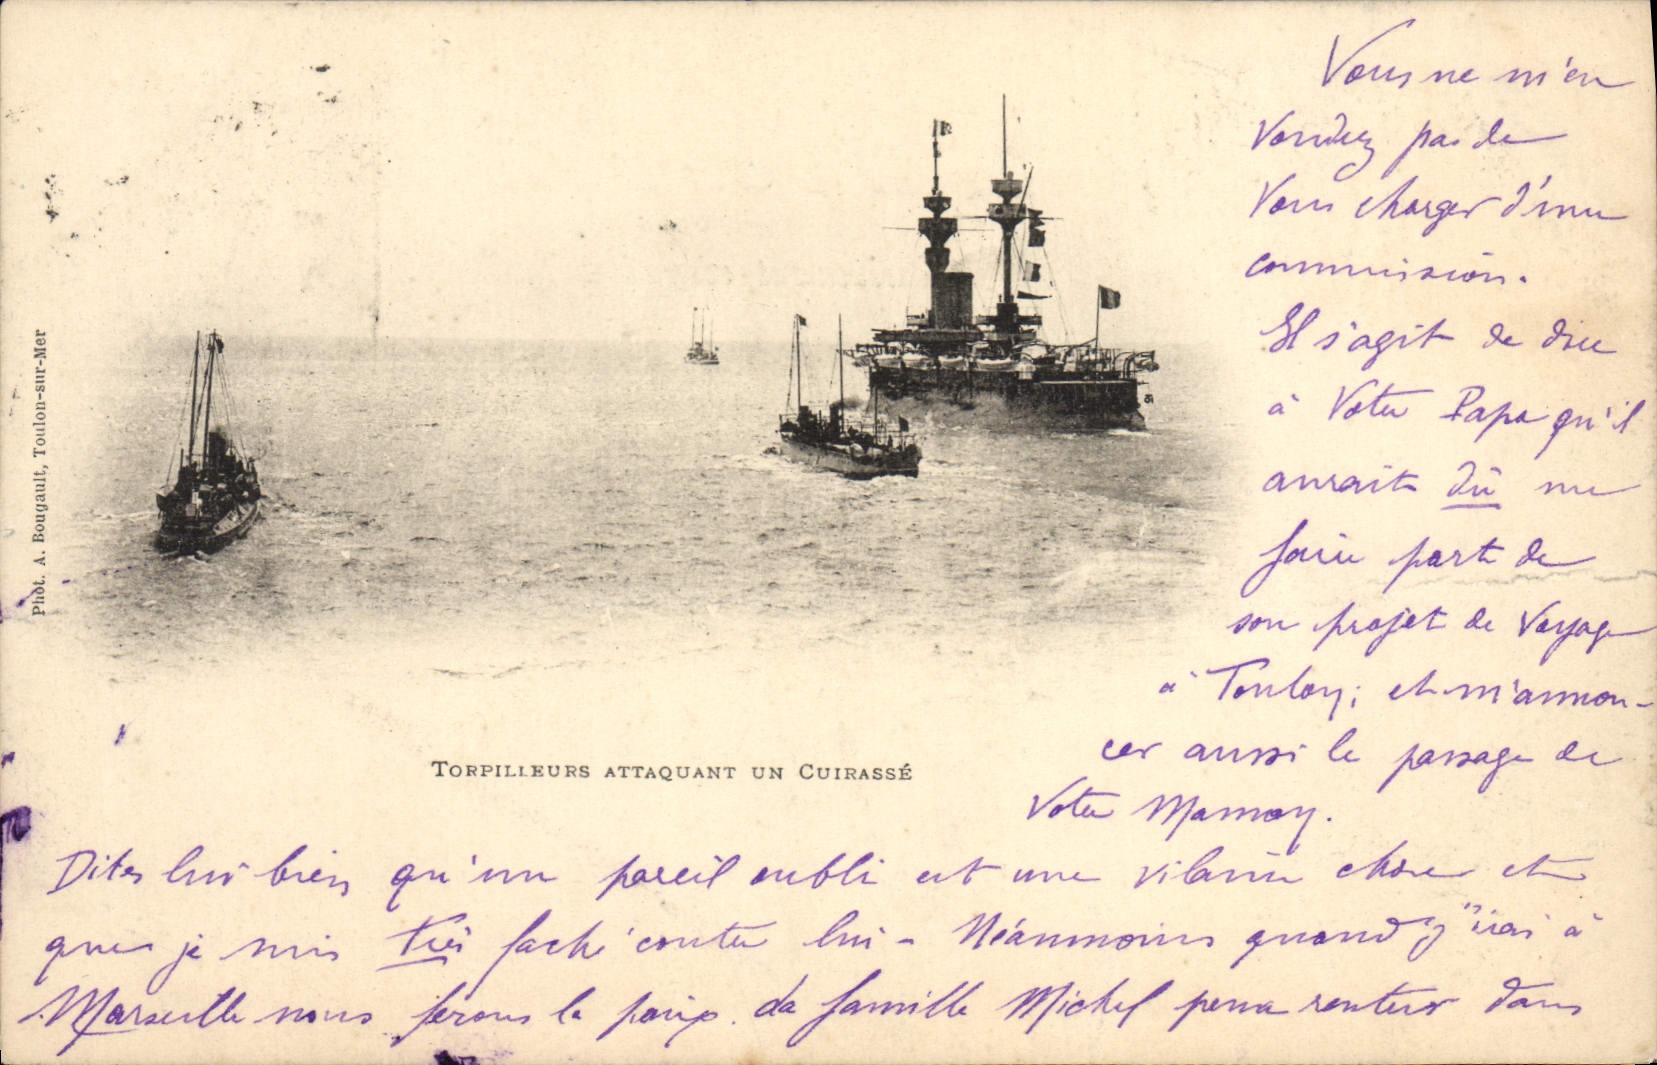 Vous ne m'en
voudrez pas de
vous charger d'une
commission.
Il s'agit de dire
à votre Papa qu'il
aurait dû me
faire part de
son projet de voyage
à Toulon; et m'annon-
cer aussi le passage de
votre Maman.
Dites lui bien qu'un pareil oubli est une vilaine chose et
que je suis très faché contre lui - Néanmoins quand j'irai à
Marseille nous ferons la paix. La famille Michel pourra rentrer dans
TORPILLEURS ATTAQUANT UN CUIRASSÉ
Phot. A. Bougault, Toulon-sur-Mer